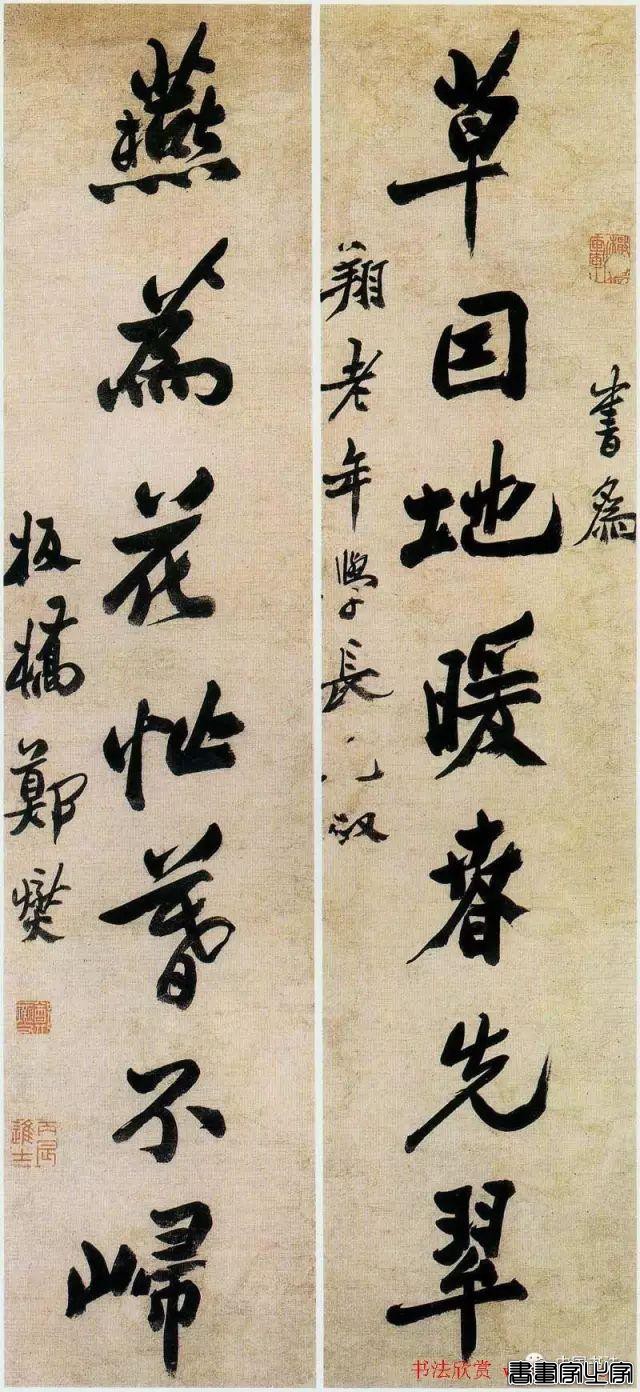 書為
草因地暖春先翠
翔老年學長兄政
燕為花忙暮不歸
板橋鄭燮
丙辰進士
书法欣赏
書畫家之家